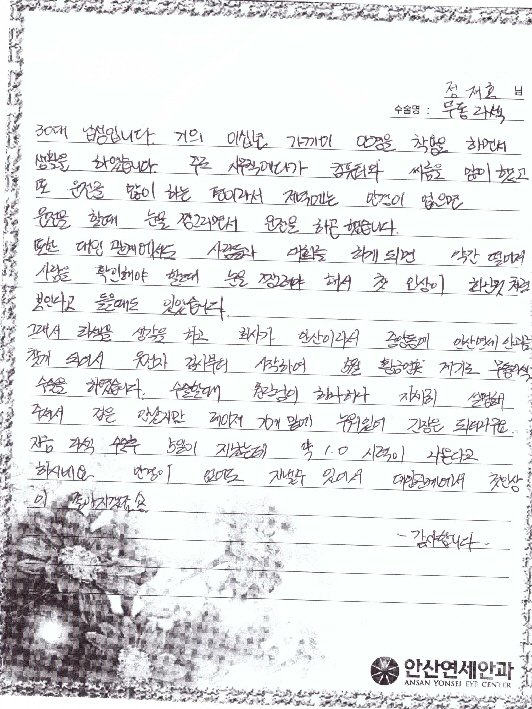 정재호 님
수술명 : 무통라섹
30대 남성입니다. 거의 이십년 가까이 안경을 착용을 하면서
생활을 하였습니다. 주로 사무직에다가 컴퓨터와 씨름을 많이 했고
또 운전을 많이 하는 편이라서 저녁에는 안경이 없으면
운전을 할때 눈을 찡그리면서 운전을 하곤 했습니다.
또한 대인 관계에서도 사람들과 대화를 하게 되면 약간 떨어져
사람을 확인해야 할때 눈을 찡그려야 해서 첫 인상이 화난것 처럼
보인다고 들을때도 있었습니다.
그래서 라섹을 생각을 하고 회사가 안산이라서 중앙동에 안산연세안과를
찾게 되어서 검사부터 시작하여 5월 황금연휴 무통라섹
수술을 하였습니다. 수술할때 하나하나 자세히 설명해
주셔서 걱정은 안났지만 레이저 기계 밑에 누워있어 긴장은 되더라구요.
지금 라섹 수술후 5일이 지났는데 약 1.0 시력이 나온다고
하시네요. 안경이 없어도 지낼수 있어서 대인관계에서 첫인상
이 좋아지겠죠
- 감사합니다 -
안산연세안과
ANSAN YONSEI EYE CENTER